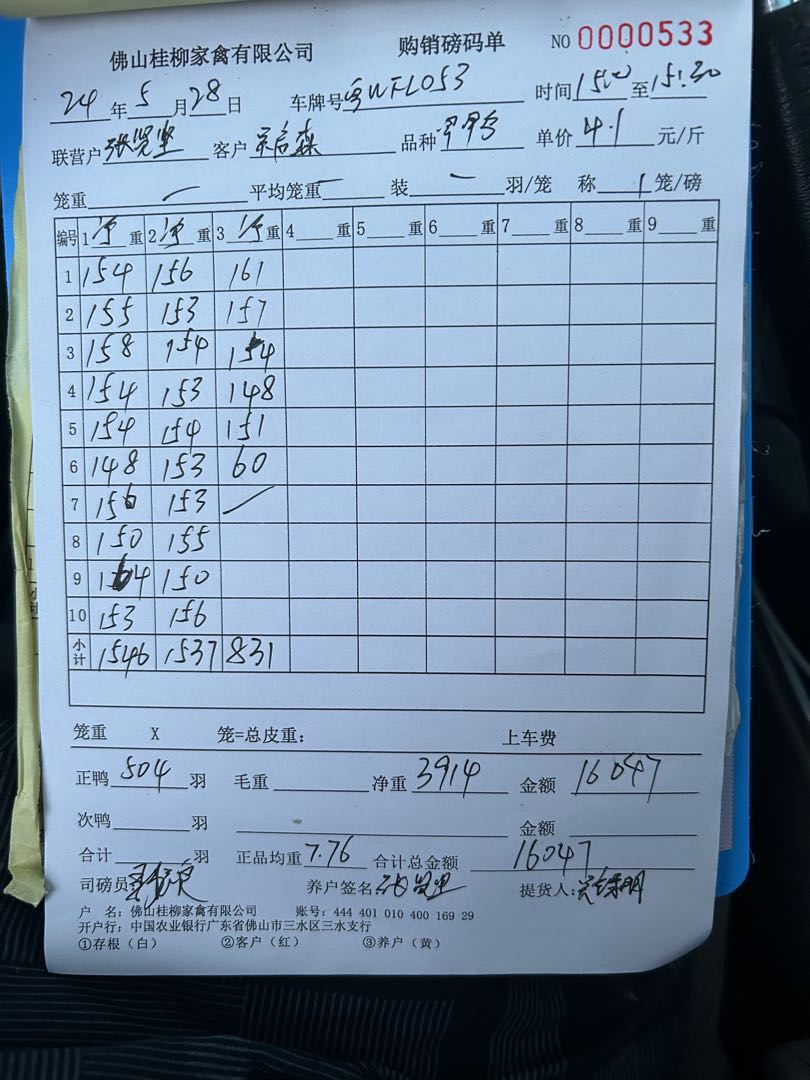 佛山桂柳家禽有限公司 购销磅码单 NO 0000533
24年5月28日 车牌号粤WFL053 时间15:00至15:30
联营户张 客户 森 品种 单价4.1元/斤
笼重一 平均笼重一 装一羽/笼 称1笼/磅
编号 1净重 2净重 3净重 4重 5重 6重 7重 8重 9重
1 154 156 161
2 155 153 157
3 158 154 154
4 154 153 148
5 154 154 151
6 148 153 60
7 156 153 /
8 150 155
9 164 150
10 153 156
小计 1546 1537 831
笼重 X 笼=总皮重: 上车费
正鸭504羽 毛重 净重3914 金额16047
次鸭 羽 金额
合计 羽 正品均重7.76 合计总金额16047
司磅员 养户签名 提货人:
户 名: 佛山桂柳家禽有限公司 账号: 444 401 010 400 169 29
开户行: 中国农业银行广东省佛山市三水区三水支行
①存根(白) ②客户(红) ③养户(黄)